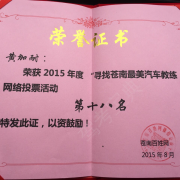 荣誉证书
黄加耐：
荣获2015年度“寻找苍南最美汽车教练
网络投票活动
第十八名
特发此证，以资鼓励！
苍南百姓网
2015年8月